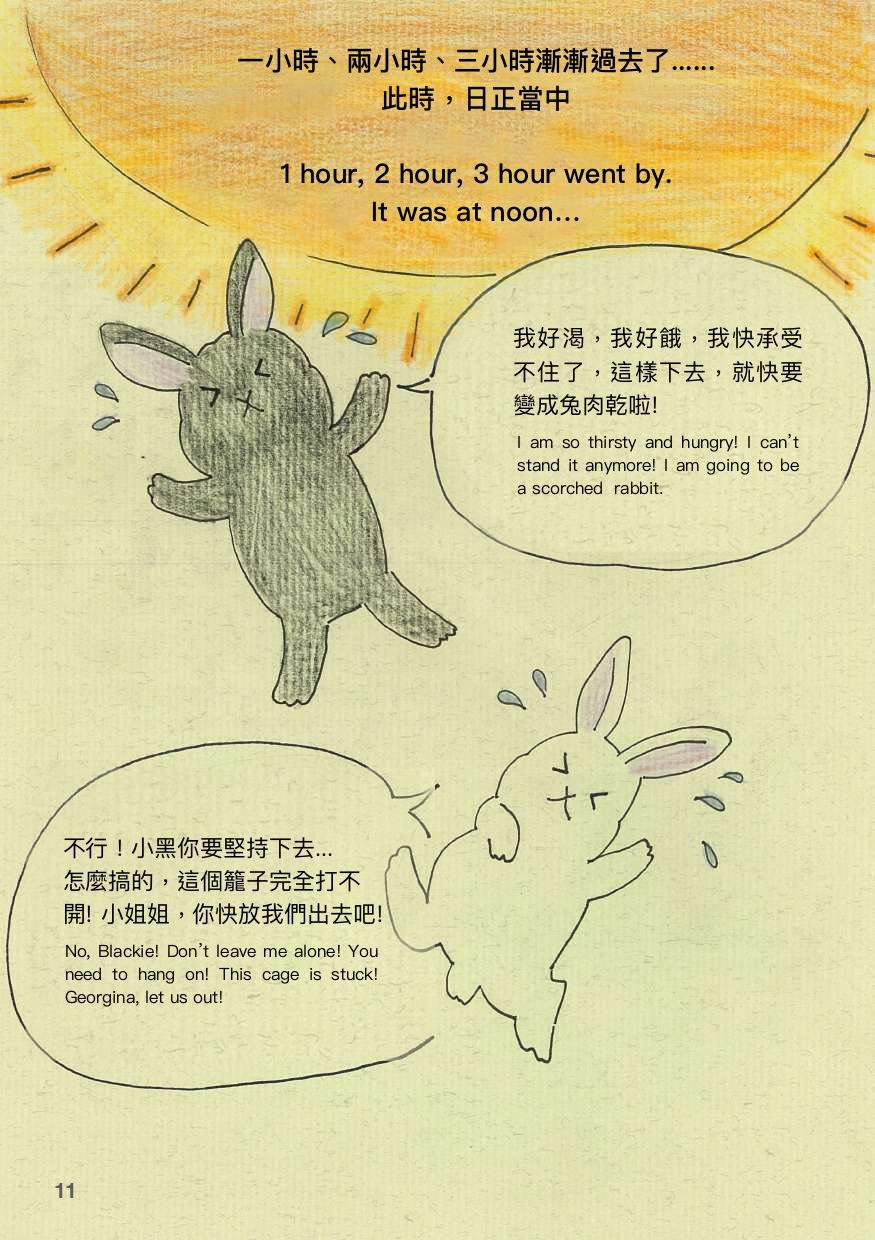 一小時、兩小時、三小時漸漸過去了......
此時，日正當中
1 hour, 2 hour, 3 hour went by.
It was at noon...
我好渴，我好餓，我快承受
不住了，這樣下去，就快要
變成兔肉乾啦!
I am so thirsty and hungry! I can't
stand it anymore! I am going to be
a scorched rabbit.
不行！小黑你要堅持下去...
怎麼搞的，這個籠子完全打不
開! 小姐姐，你快放我們出去吧!
No, Blackie! Don't leave me alone! You
need to hang on! This cage is stuck!
Georgina, let us out!
11